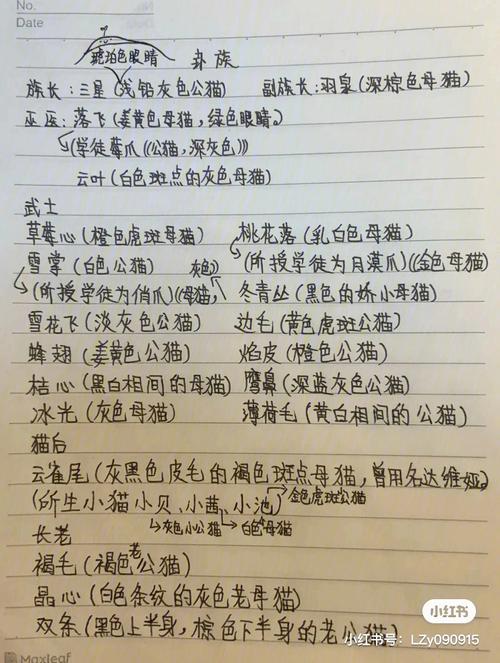 No.
Date
琥珀色眼睛 卦族
族长:三星(浅铅灰色公猫) 副族长:羽泉(深棕色母猫)
巫医:落飞(姜黄色母猫,绿色眼睛。)
(学徒莓爪((公猫,深灰色)))
云叶(白色斑点的灰色母猫)
武士
草莓心(橙色虎斑母猫) 桃花落(乳白色母猫)
雪掌(白色公猫) 灰色) (所授学徒为月漠爪)(金色母猫)
(所授学徒为俏爪)(母猫, 冬青丛(黑色的娇小母猫)
雪花飞(淡灰色公猫) 边毛(黄色虎斑公猫)
蜂翅(姜黄色公猫) 焰皮(橙色公猫)
桔心(黑白相间的母猫) 鹰鼻(深蓝灰色公猫)
冰光(灰色母猫) 薄荷毛(黄白相间的公猫)
猫后
云雀尾(灰黑色皮毛的褐色斑点母猫,曾用名达维娅。)
(所生小猫小贝、小茜、小池) 金色虎斑公猫
灰色小公猫 白色母猫
长老
褐毛(褐色老公猫)
晶心(白色条纹的灰色老母猫)
双条(黑色上半身,棕色下半身的老公猫)
小红书
小红书号:LZy090915
Maxleaf